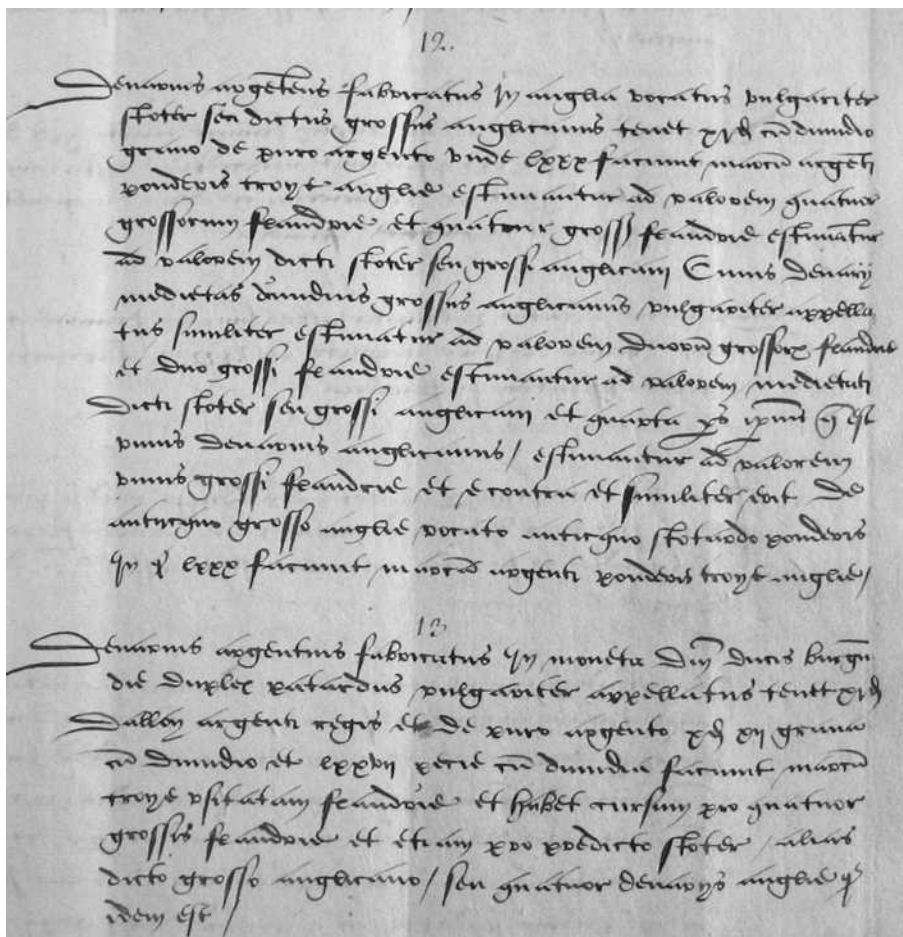 12.
Denarius argenteus fabricatus In anglia vocatus vulgariter
stoter seu dictus grossus anglicanus tenet xi d cu dimidio
grano de puro argento vnde lxxx faciunt marcu argeti
ponderis troye anglie estimantur ad valorem quatuor
grossorum flandrie et quatuor grossi flandrie estimatur
ad valorem dicti stoter seu grossi anglicani Cuius denarij
medietas dimidius grossus anglicanus vulgariter appella
tus similiter estimatur ad valorem duoru grossorum flandrie
et duo grossi flandrie estimantur ad valorem medietati
dicti stoter seu grossi anglicani et quarta ps ipius q est
vnus denarius anglicanus / estimantur ad valorem
vnius grossi flandrie et econtra et similiter erit de
antiquo grosso anglie vocato antiquo stotardo ponderis
In q lxxx faciunt marcam argenti ponderis troye anglie /
13
Denarius argentius fabricatus In moneta dni ducis burgu
die duplex patardus vulgariter appellatus tenet xi d
dalloy argenti regis et de puro argento x d xii grana
cu dimidio et lxxvii pecie cu dimidia faciunt marcu
troye vsitatam flandrie et habet cursum pro quatuor
grossis flandrie et etiam pro predicto stoter / alias
dicto grosso anglicano / seu quatuor denarijs anglie q
idem est /